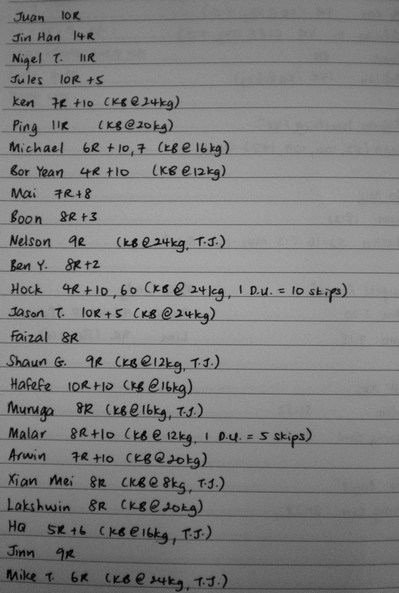 Juan 10R
Jin Han 14R
Nigel T. 11R
Jules 10R +5
Ken 7R +10 (KB @ 24kg)
Ping 11R (KB @ 20kg)
Michael 6R + 10,7 (KB @ 16kg)
Bor Yean 4R +10 (KB @ 12kg)
Mai 7R +8
Boon 8R +3
Nelson 9R (KB @ 24kg, T.J.)
Ben Y. 8R +2
Hock 4R +10, 60 (KB @ 24kg, 1 D.U. = 10 skips)
Jason T. 10R +5 (KB @ 24kg)
Faizal 8R
Shaun G. 9R (KB @ 12kg, T.J.)
Hafefe 10R +10 (KB @ 16kg)
Muruga 8R (KB @ 16kg, T.J.)
Malar 8R +10 (KB @ 12kg, 1 D.U. = 5 skips)
Arwin 7R +10 (KB @ 20kg)
Xian Mei 8R (KB @ 8kg, T.J.)
Lakshwin 8R (KB @ 20kg)
HQ 5R +6 (KB @ 16kg, T.J.)
Jinn 9R
Mike T. 6R (KB @ 24kg, T.J.)